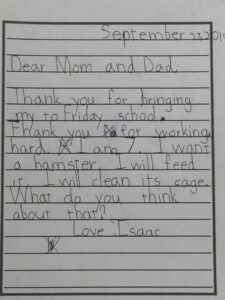 September 27, 201
Dear Mom and Dad,
Thank you for bringing
my to Friday school.
Thank you for working
hard. I am 7. I want
a hamster. I will feed
it. I will clean its cage.
What do you think
about that?
Love Isaac